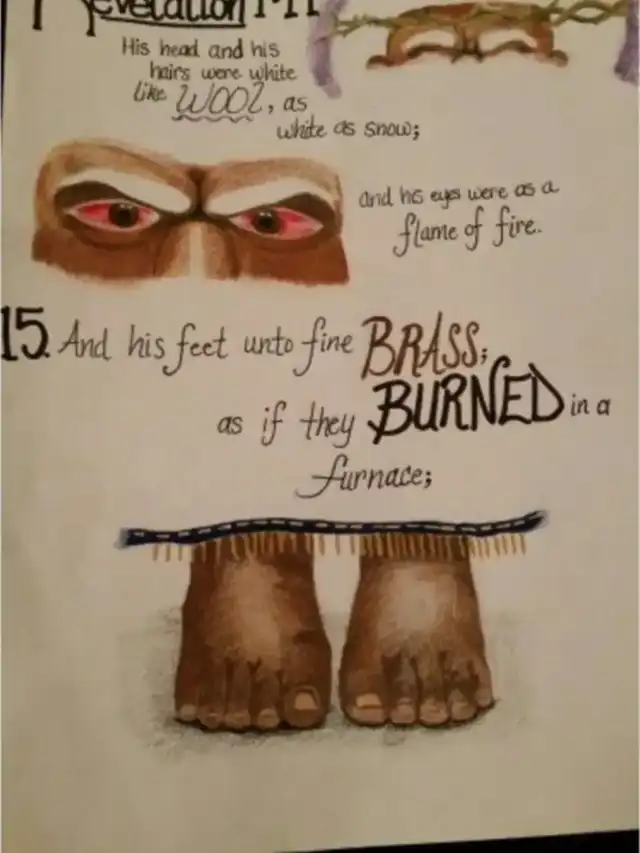 Revelation 1:14
His head and his
hairs were white
like WOOL, as
white as snow;
and his eyes were as a
flame of fire.
15. And his feet unto fine BRASS;
as if they BURNED in a
furnace;